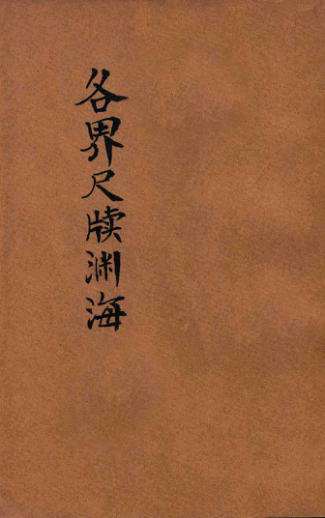 各界尺牍渊海